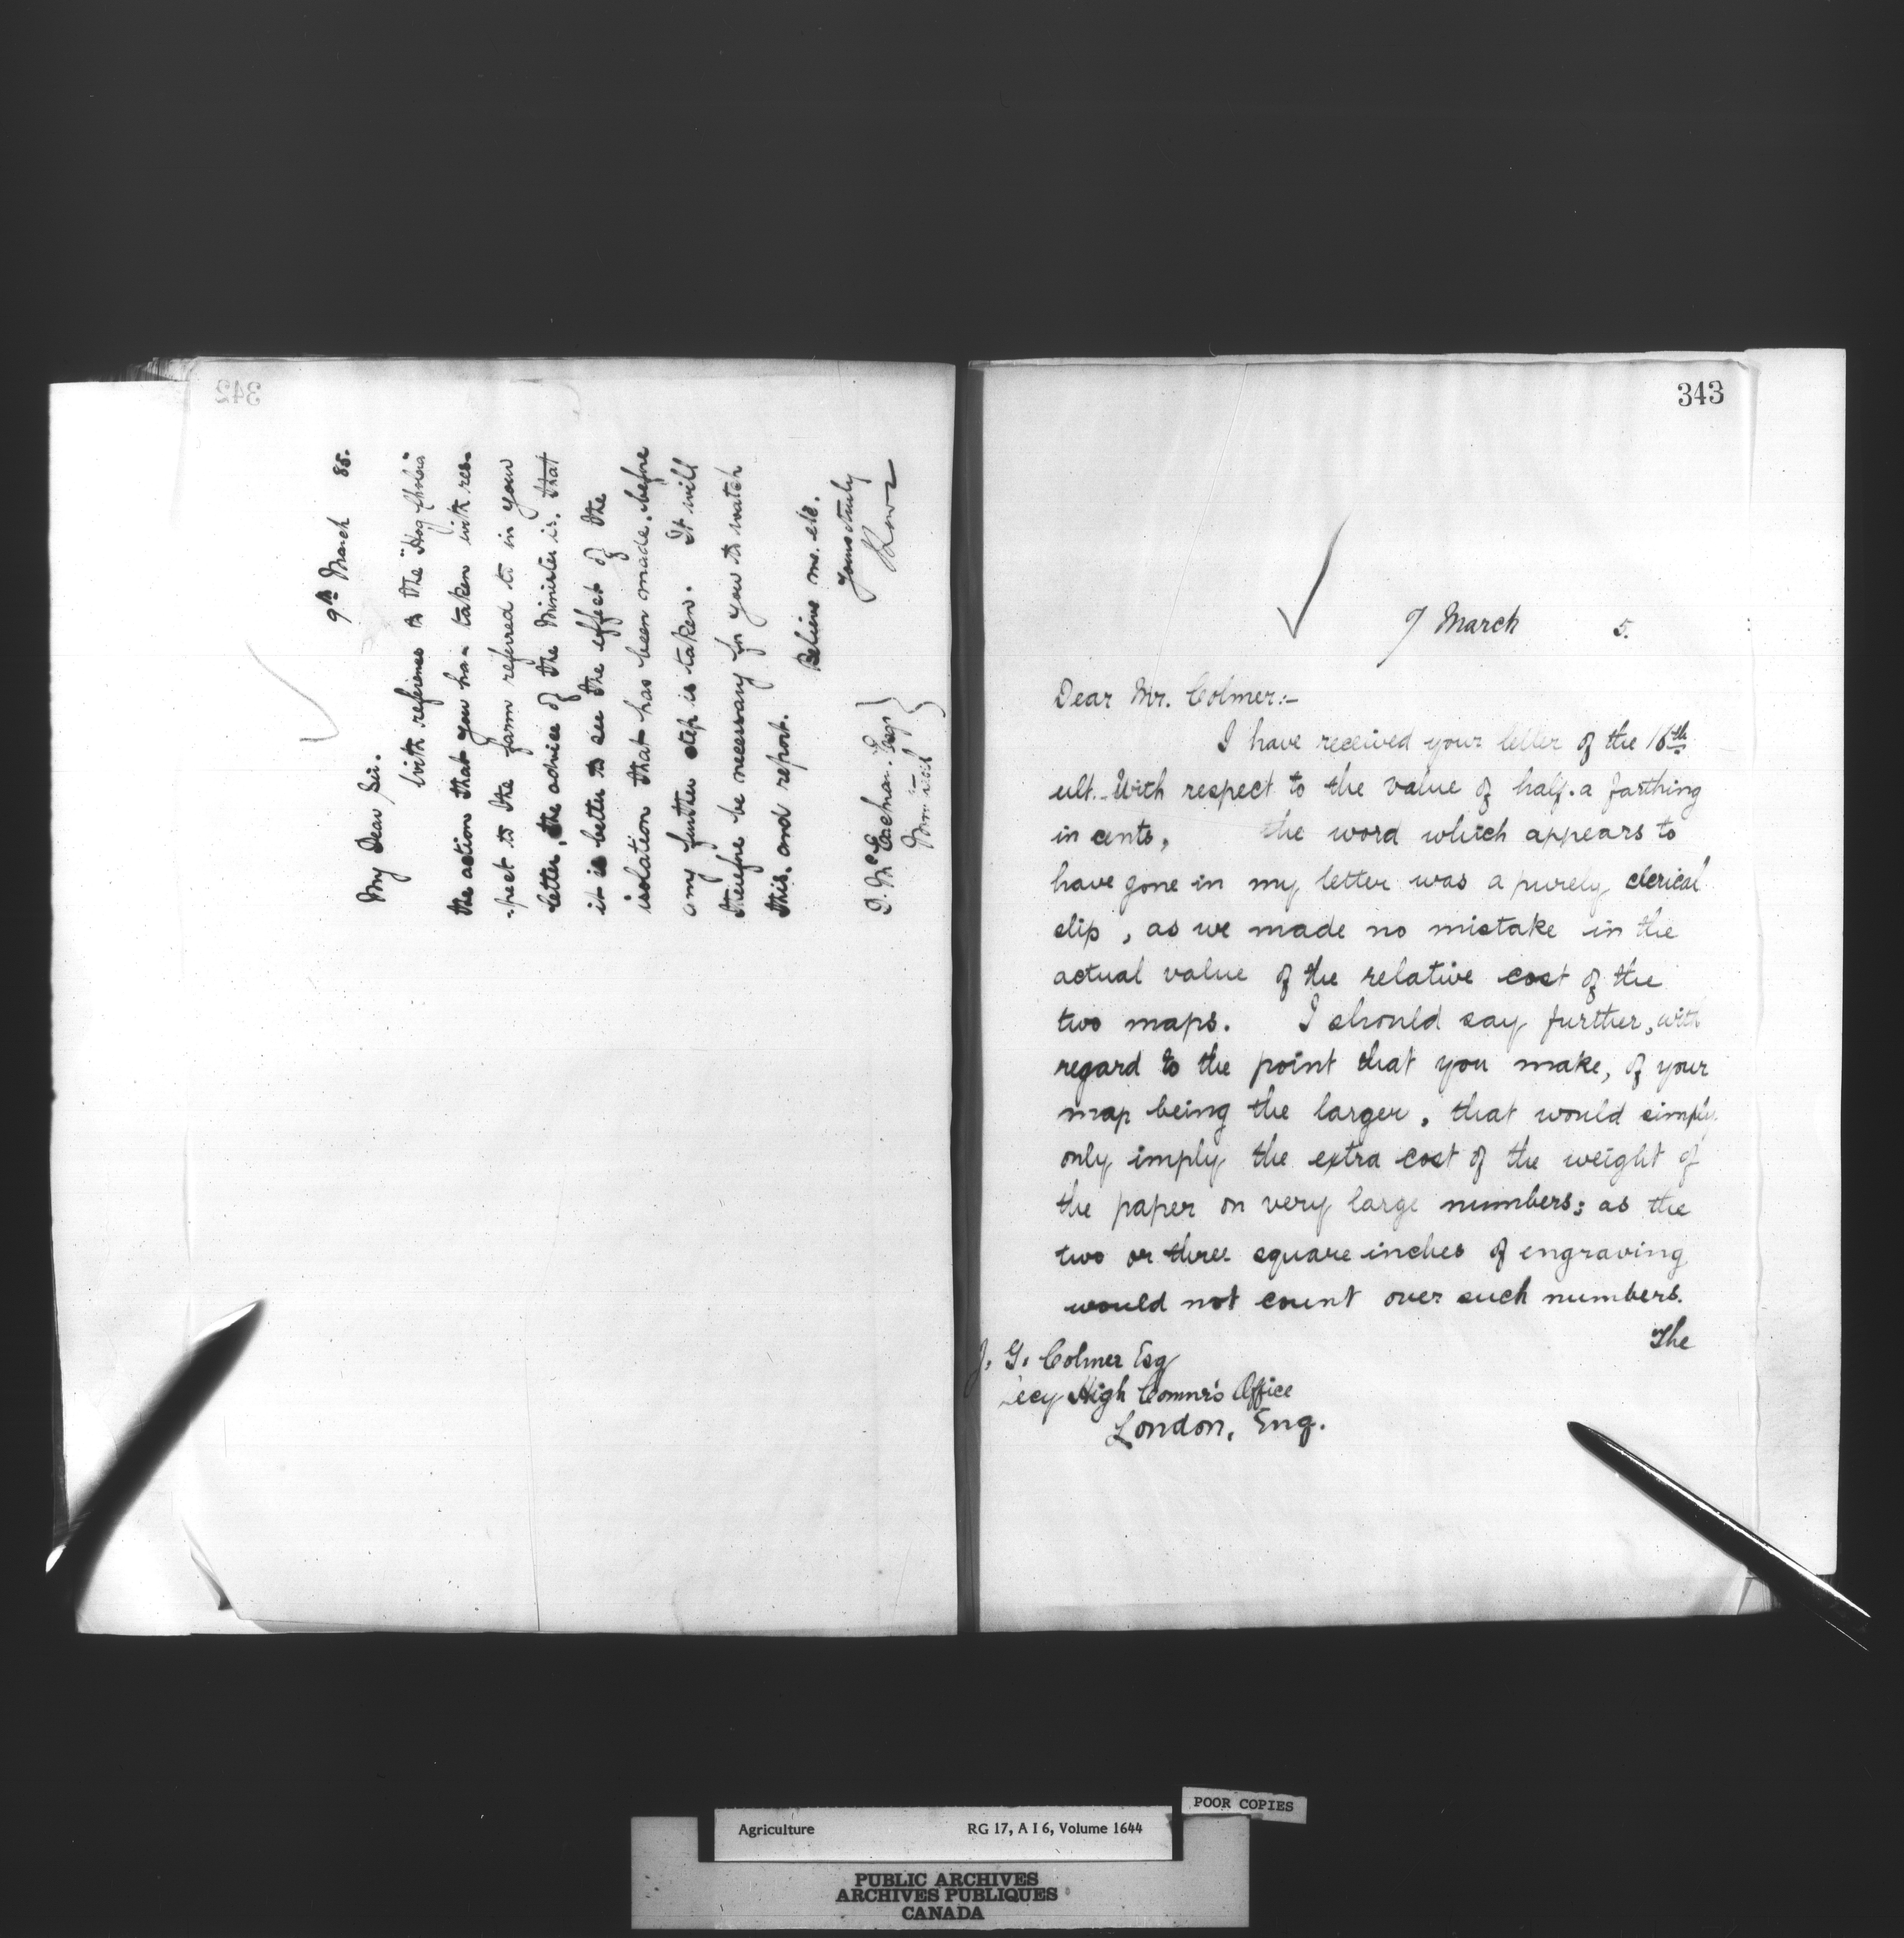 342
9th March 85.
My Dear Sir.
With reference to the "Hog Cholera"
the action that you have taken with res-
-pect to the farm referred to in your
letter, the advice of the Minister is, that
it is better to see the effect of the
isolation that has been made, before
any further step is taken. It will
therefore be necessary for you to watch
this, and report.
Believe me. etc.
Yours truly
D. McEachran. Esq
343
9 March 5.
Dear Mr. Colmer:-
I have received your letter of the 16th
ult. With respect to the value of half a farthing
in cents, the word which appears to
have gone in my letter was a purely clerical
slip, as we made no mistake in the
actual value of the relative cost of the
two maps. I should say further, with
regard to the point that you make, of your
map being the larger, that would simply
only imply the extra cost of the weight of
the paper on very large numbers; as the
two or three square inches of engraving
would not count over such numbers.
The
J. G. Colmer Esq
Secy High Comnr's Office
London, Eng.
POOR COPIES
Agriculture RG 17, A I 6, Volume 1644
PUBLIC ARCHIVES
ARCHIVES PUBLIQUES
CANADA